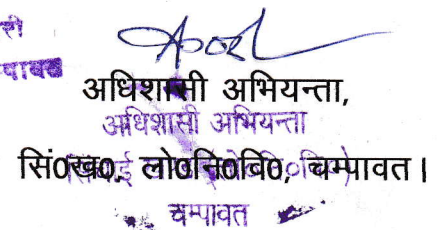 री
अधिशासी अभियन्ता,
अधिशासी अभियन्ता
सिं0ख0, लो0नि0वि0, चम्पावत।
चम्पावत